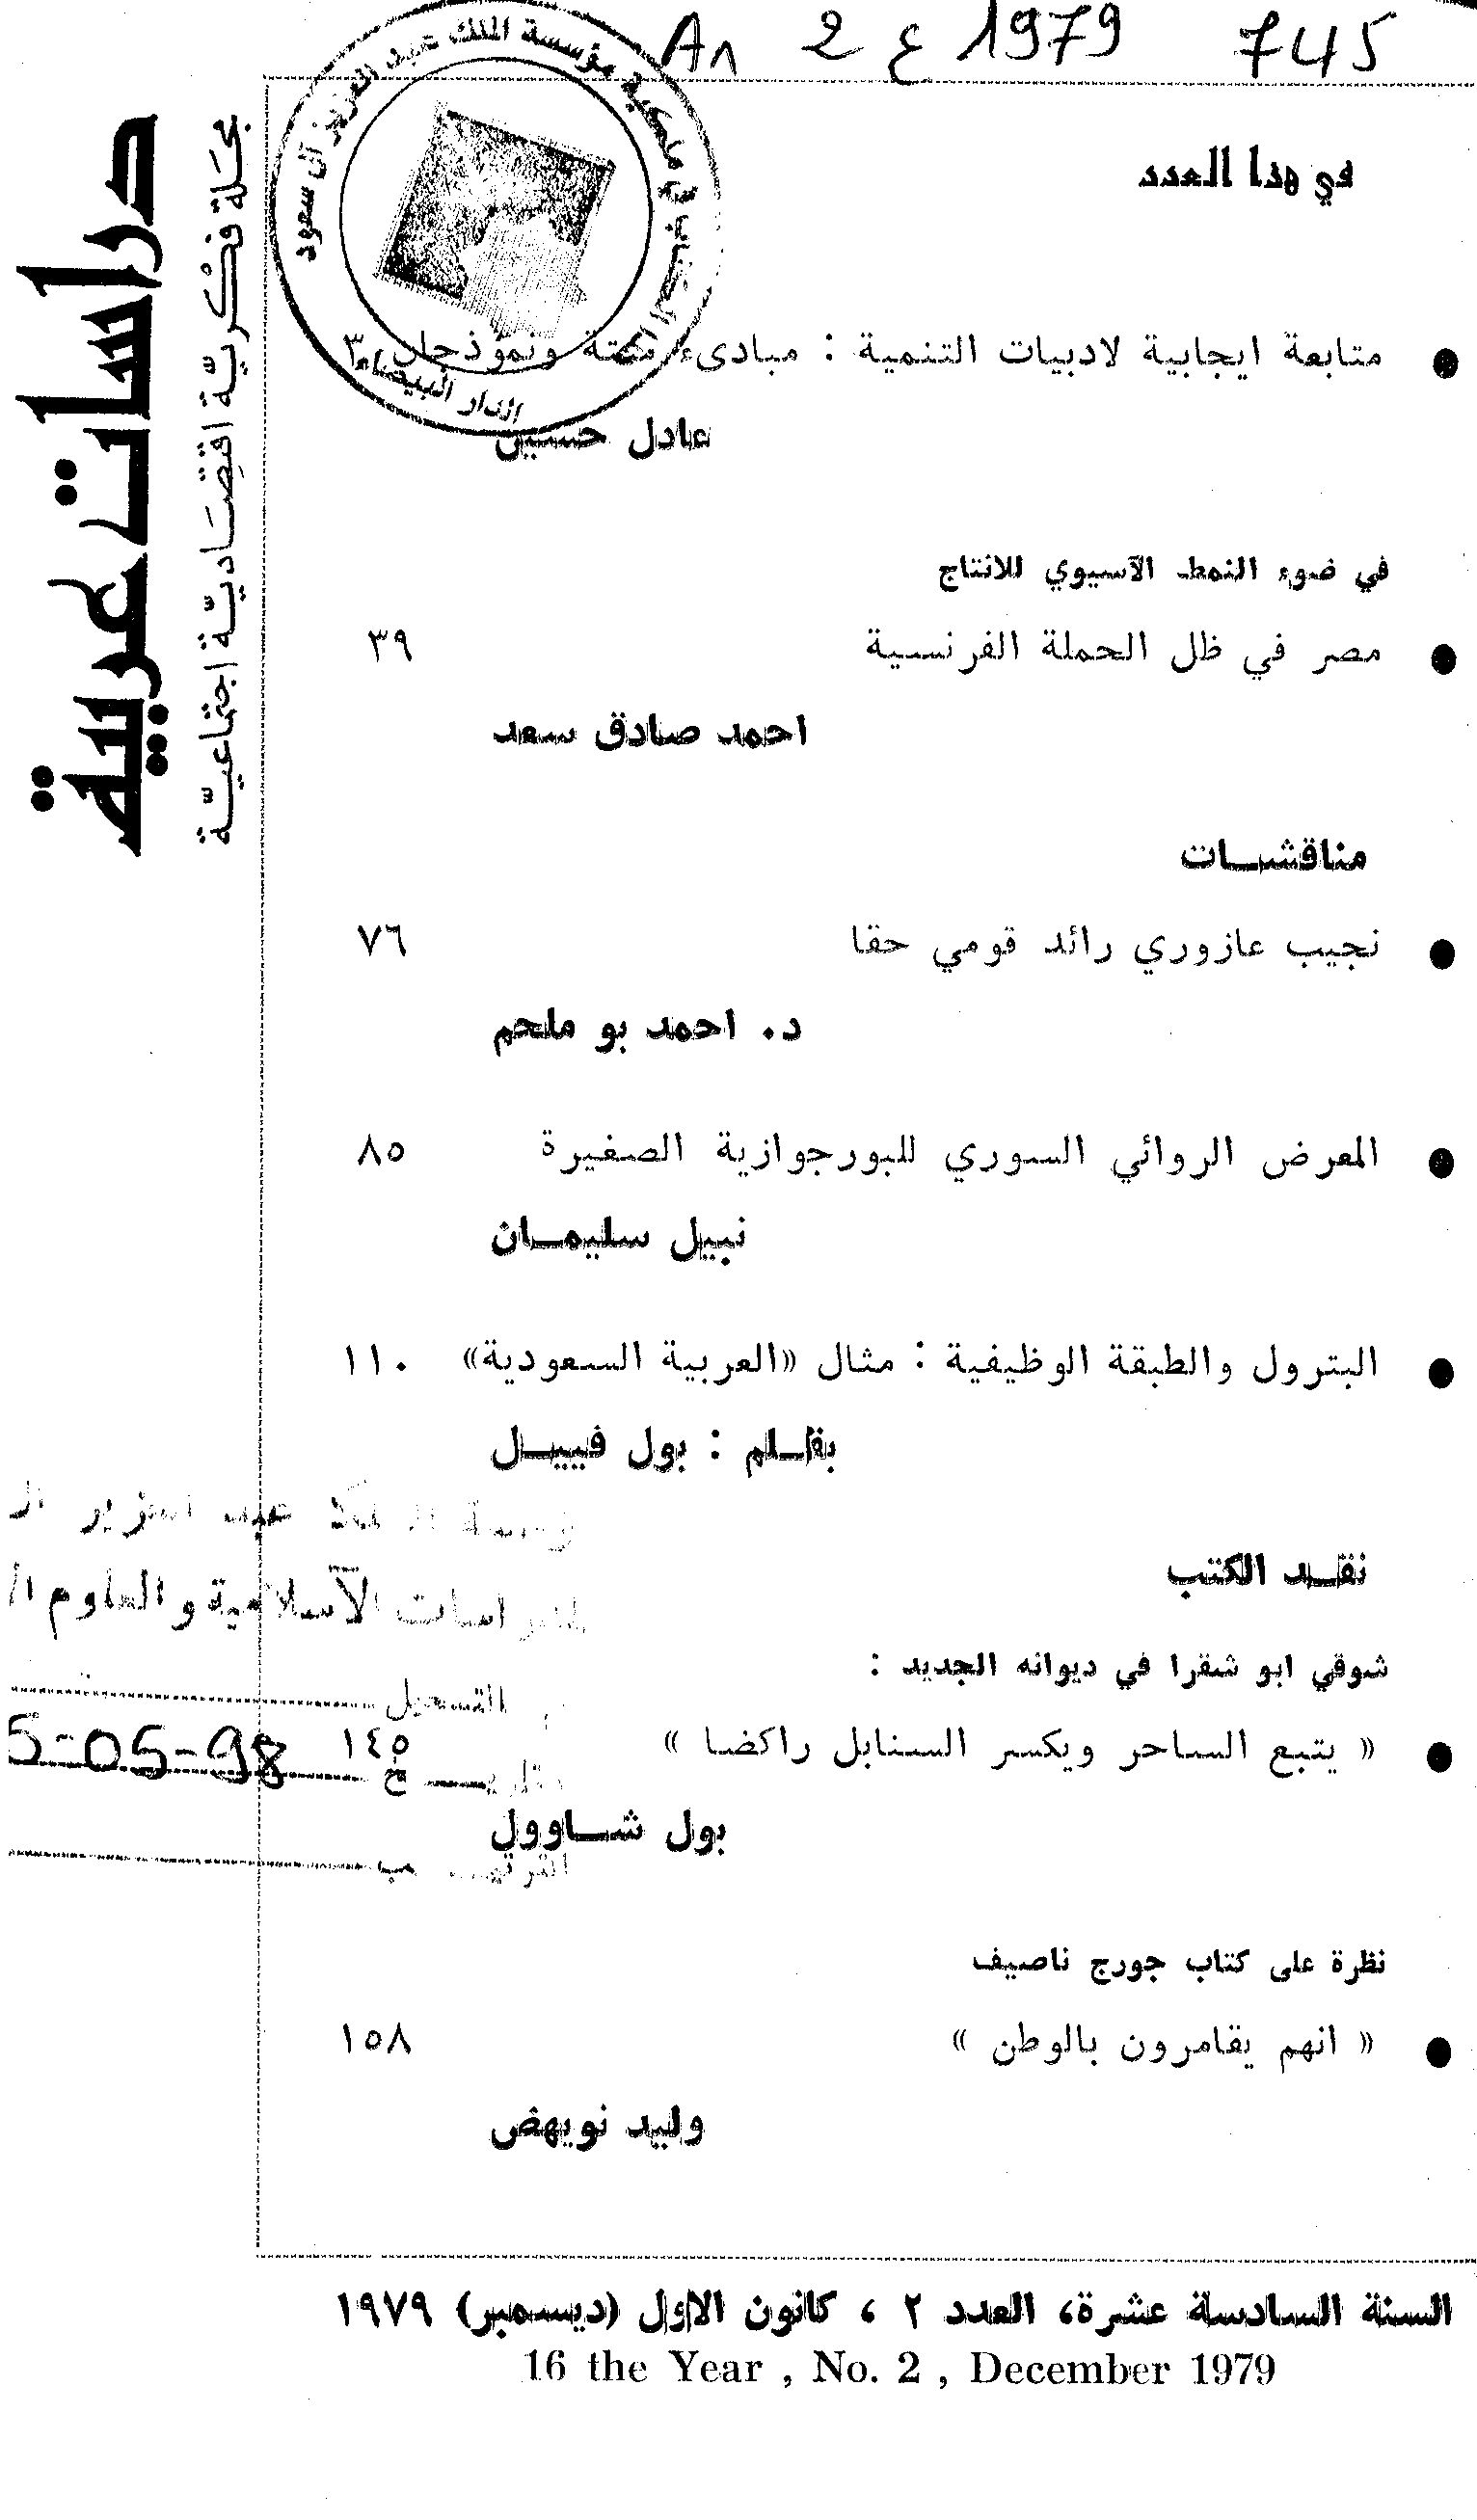 An 2 ع 1979 745
مؤسسة الملك عبد العزيز آل سعود
الدار البيضاء
دراسات عربية
مجلة فكرية اقتصادية اجتماعية
في هذا العدد
● متابعة ايجابية لادبيات التنمية : مبادىء ونموذجان ٣
عادل حسين
في ضوء النمط الآسيوي للانتاج
● مصر في ظل الحملة الفرنسية ٣٩
احمد صادق سعد
مناقشات
● نجيب عازوري رائد قومي حقا ٧٦
د. احمد بو ملحم
● المعرض الروائي السوري للبورجوازية الصغيرة ٨٥
نبيل سليمان
● البترول والطبقة الوظيفية : مثال «العربية السعودية» ١١٠
بقلم : بول فييل
عبد
الآسلامية والعلوم
نقد الكتب
شوقي ابو شقرا في ديوانه الجديد :
التسجيل
● « يتبع الساحر ويكسر السنابل راكضا » ١٤٥
5-05-98
بول شاوول
نظرة على كتاب جورج ناصيف
● « انهم يقامرون بالوطن » ١٥٨
وليد نويهض
السنة السادسة عشرة، العدد ٢ ، كانون الاول (ديسمبر) ١٩٧٩
16 the Year , No. 2 , December 1979